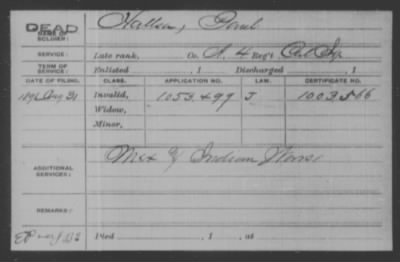 DEAD
NAME OF SOLDIER:
Paul
SERVICE: Late rank, Co. A. 4 Reg't Art
TERM OF SERVICE: Enlisted , 1 Discharged , 1
DATE OF FILING. CLASS. APPLICATION NO. LAW. CERTIFICATE NO.
1896 Aug 31 Invalid, 1053.499 J 1003.566
Widow,
Minor,
ADDITIONAL SERVICES:
Mex & Indian Wars
REMARKS:
Died , 1 , at